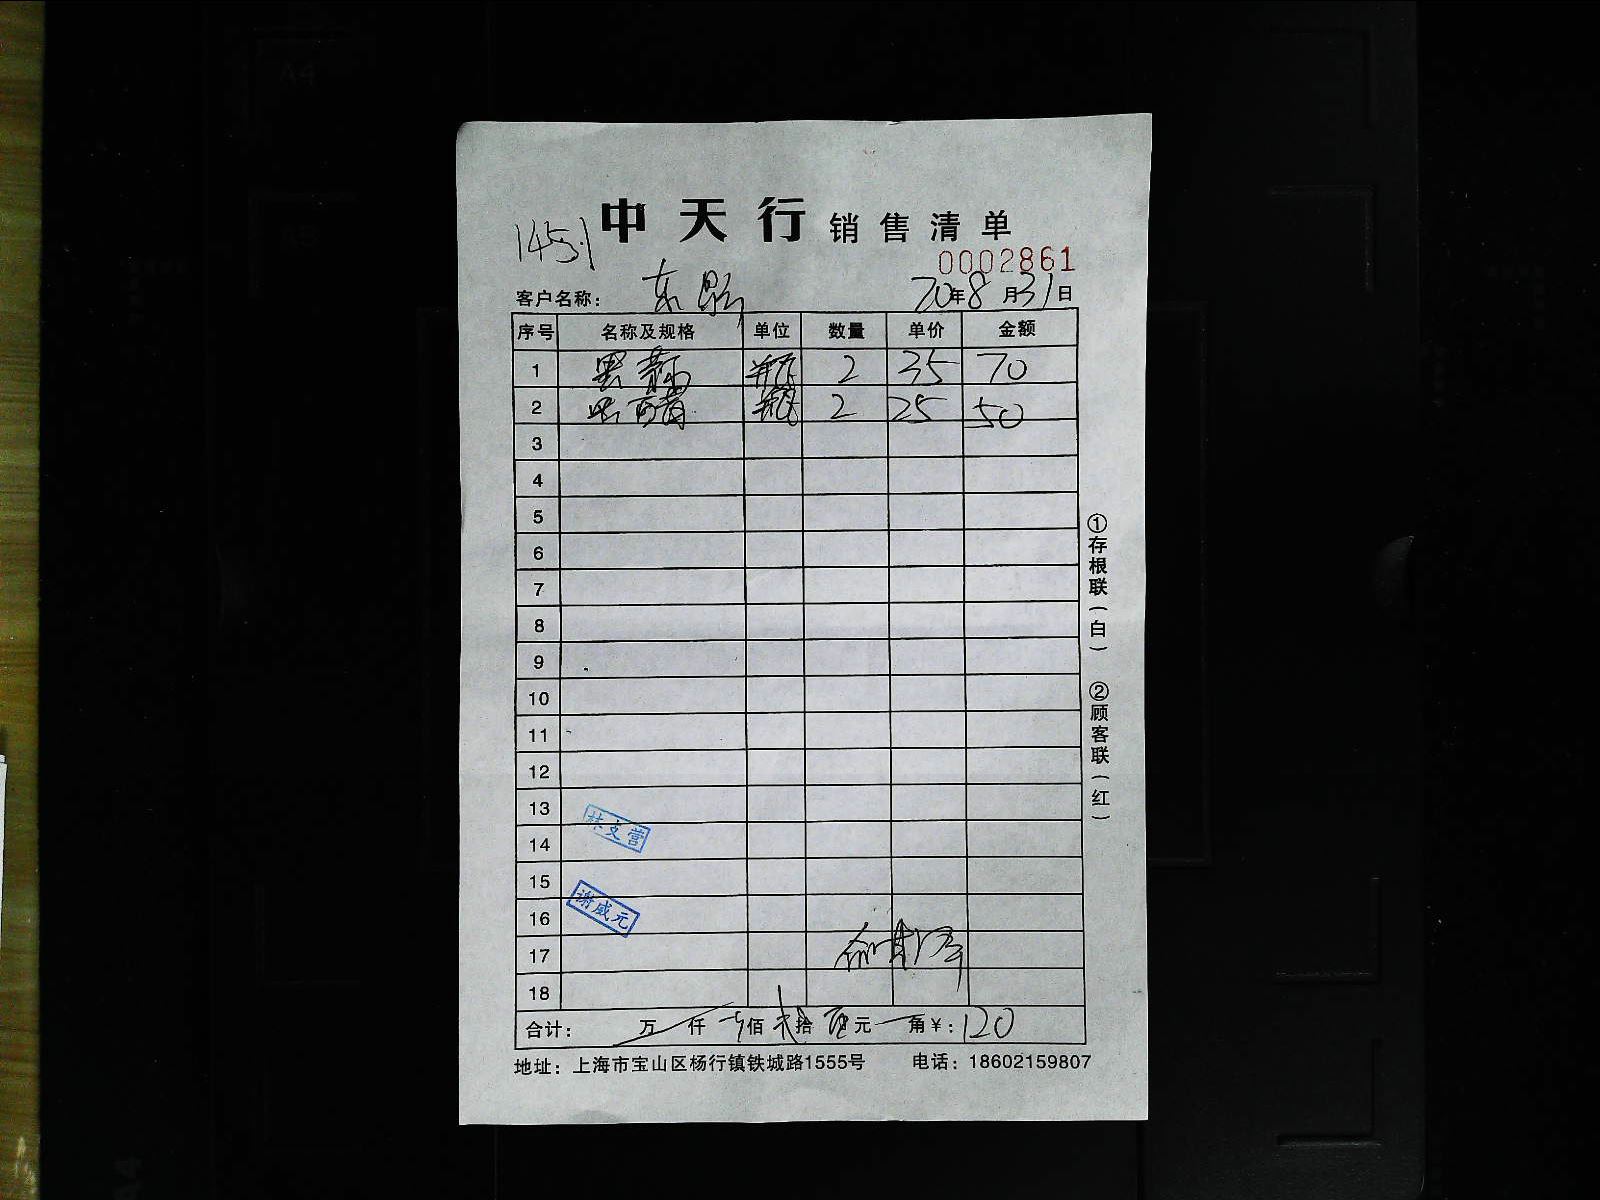 中天行 销售清单
1451
0002861
客户名称： 20年8月31日
序号 名称及规格 单位 数量 单价 金额
1 瓶 2 35 70
2 瓶 2 25 50
3
4
5
6
7
8
9
10
11
12
13
林文营
14
15
谢威元
16
17
18
合计： 万 仟 佰 拾 元 角￥：120
地址：上海市宝山区杨行镇铁城路1555号 电话：18602159807
①存根联（白） ②顾客联（红）